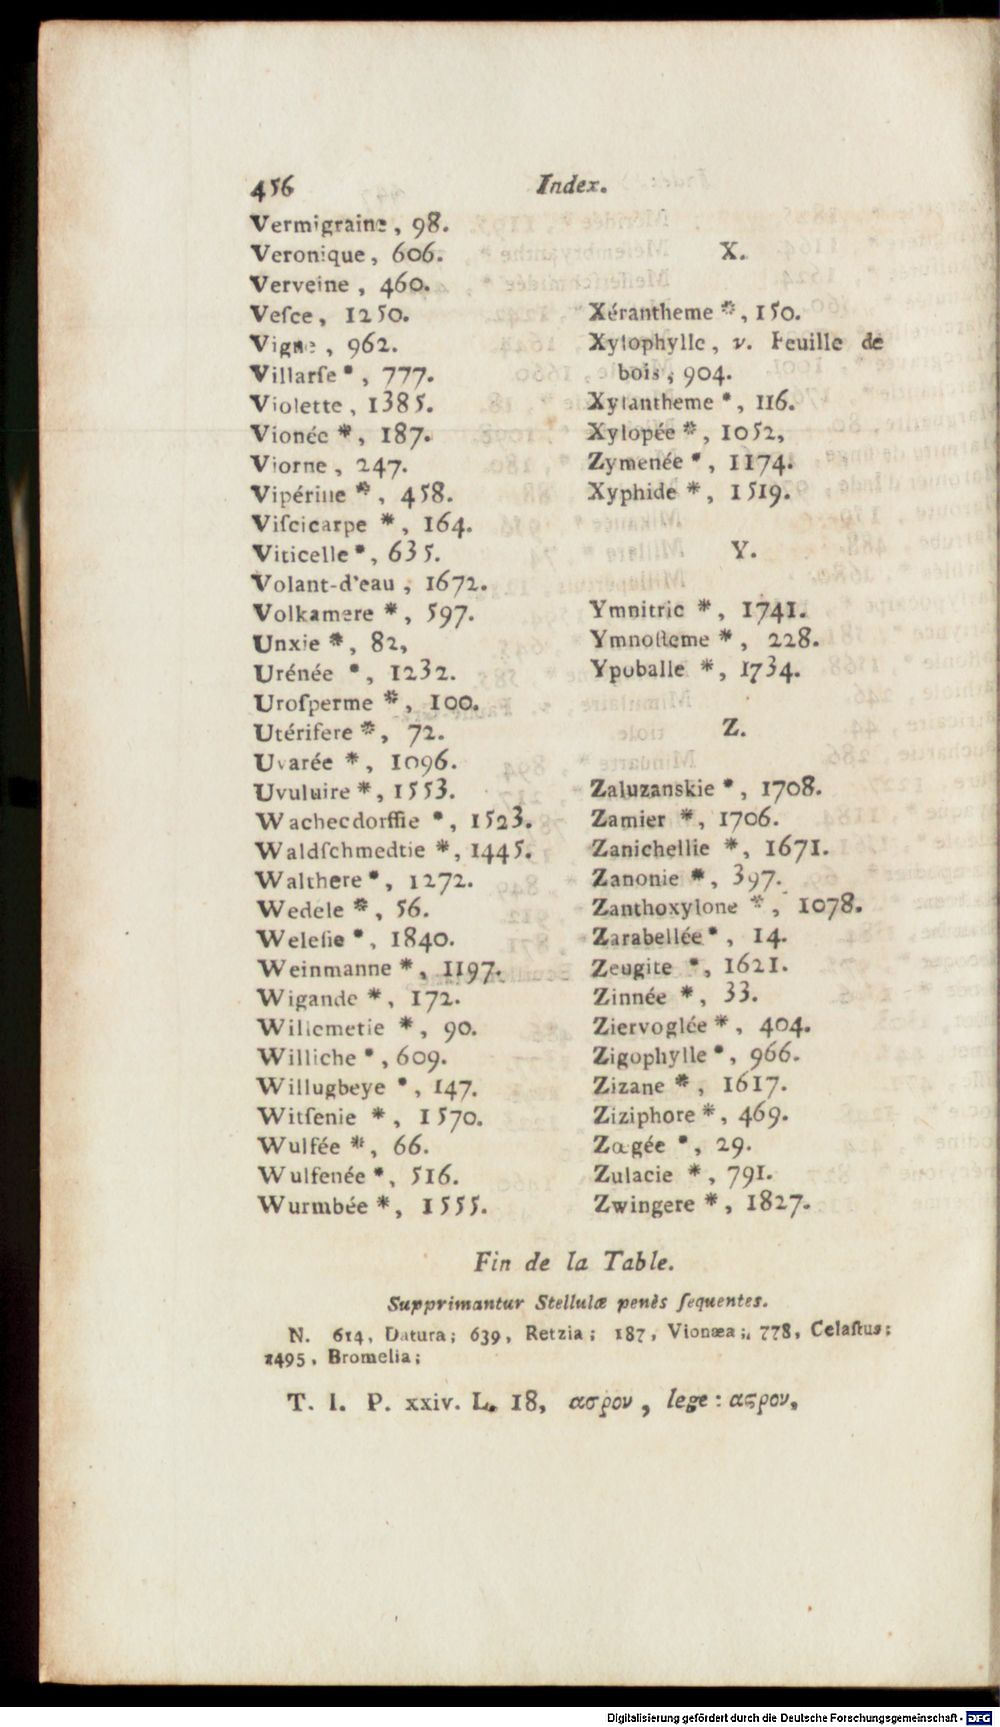 456
Index.
Vermigraine, 98.
Veronique, 606.
Verveine, 460.
Veſce, 1250.
Vigne, 962.
Villarſe *, 777.
Violette, 1385.
Vionée *, 187.
Viorne, 247.
Vipérine *, 458.
Viſcicarpe *, 164.
Viticelle *, 635.
Volant-d'eau, 1672.
Volkamere *, 597.
Unxie *, 82,
Urénée *, 1232.
Uroſperme *, 100.
Utérifere *, 72.
Uvarée *, 1096.
Uvuluire *, 1553.
Wachecdorffie *, 1523.
Waldſchmedtie *, 1445.
Walthere *, 1272.
Wedele *, 56.
Weleſie *, 1840.
Weinmanne *, 1197.
Wigande *, 172.
Willemetie *, 90.
Williche *, 609.
Willugbeye *, 147.
Witſenie *, 1570.
Wulfée *, 66.
Wulfenée *, 516.
Wurmbée *, 1555.
X.
Xérantheme *, 150.
Xylophylle, v. Feuille de
bois, 904.
Xylantheme *, 116.
Xylopée *, 1052,
Zymenée *, 1174.
Xyphide *, 1519.
Y.
Ymnitric *, 1741.
Ymnoſteme *, 228.
Ypoballe *, 1734.
Z.
Zaluzanskie *, 1708.
Zamier *, 1706.
Zanichellie *, 1671.
Zanonie *, 397.
Zanthoxylone *, 1078.
Zarabellée *, 14.
Zeugite *, 1621.
Zinnée *, 33.
Ziervoglée *, 404.
Zigophylle *, 966.
Zizane *, 1617.
Ziziphore *, 469.
Zœgée *, 29.
Zulacie *, 791.
Zwingere *, 1827.
Fin de la Table.
Supprimantur Stellulæ penès ſequentes.
N. 614, Datura; 639, Retzia; 187, Vionæa; 778, Celaſtus;
1495, Bromelia;
T. I. P. xxiv. L. 18, ασρον, lege: αςρον,
Digitalisierung gefördert durch die Deutsche Forschungsgemeinschaft - DFG